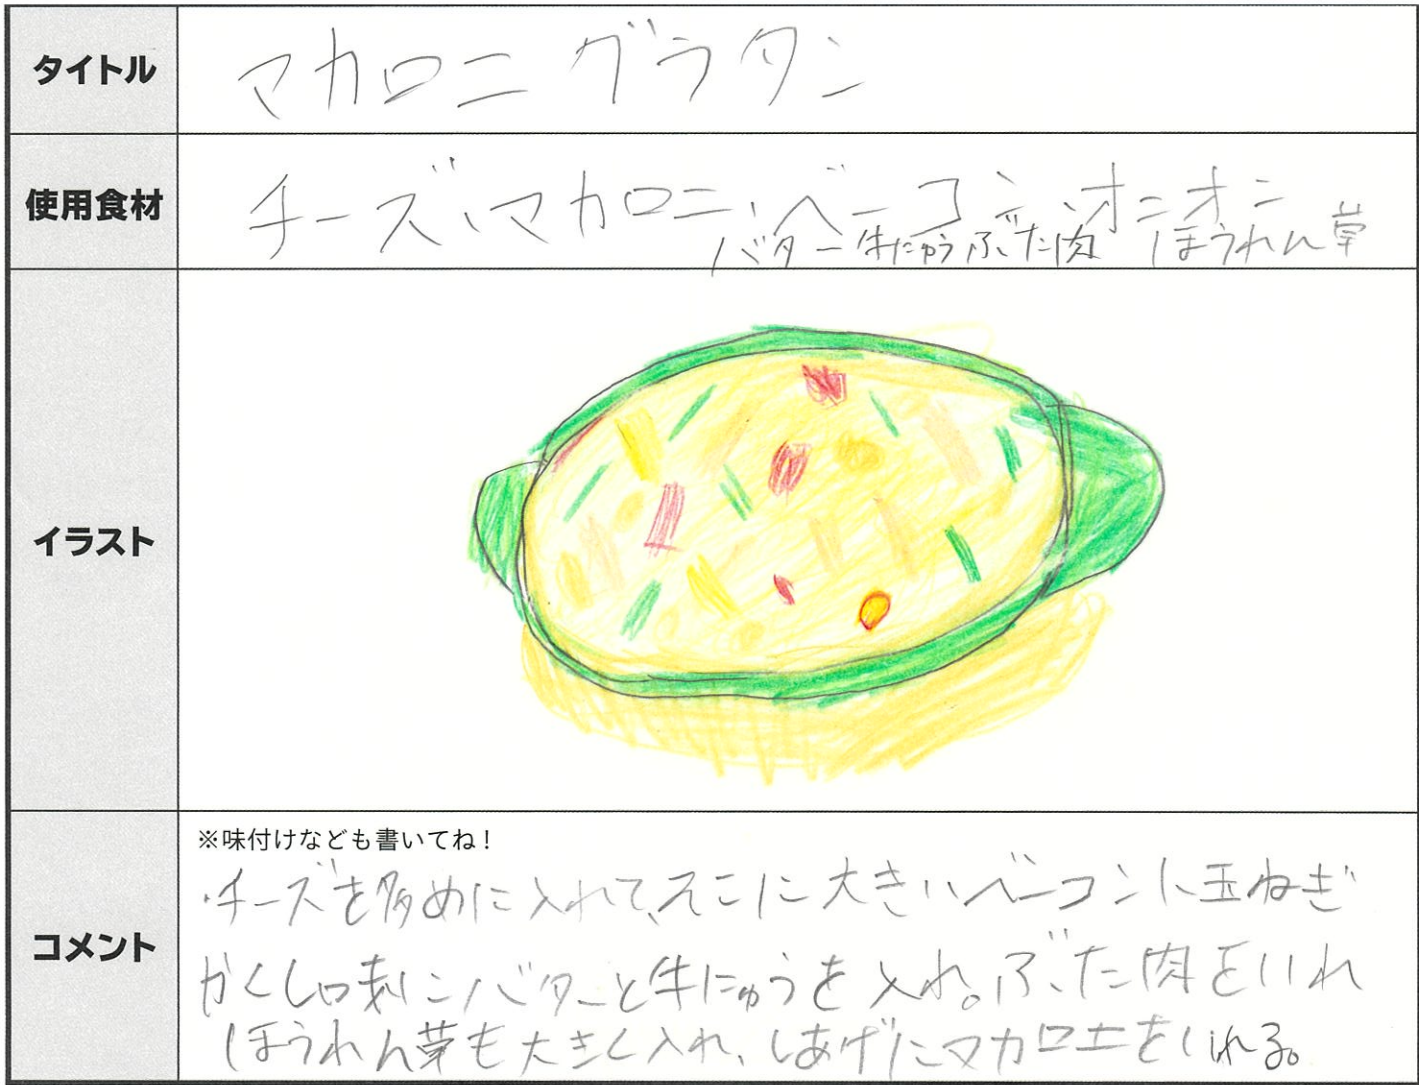 タイトル
マカロニグラタン
使用食材
チーズ、マカロニ、ベーコン、オニオン
バター牛にゅうぶた肉 ほうれん草
イラスト
コメント
※味付けなども書いてね！
・チーズを多めに入れて、そこに大きいベーコンに玉ねぎ
かくし味にバターと牛にゅうを入れ。ぶた肉をいれ
ほうれん草も大きく入れ、しあげにマカロニをいれる。